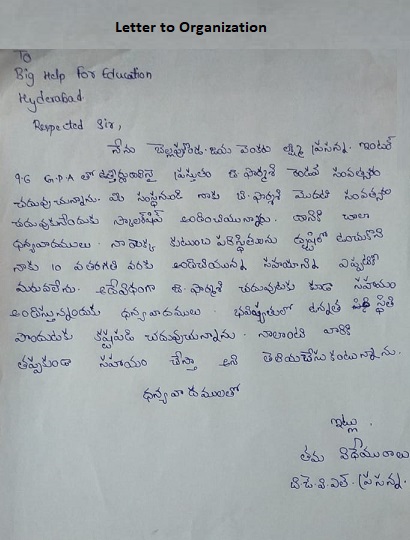 Letter to Organization
To
Big Help For Education
Hyderabad
Respected Sir,
నేను బెల్లపుకొండ జయ వెంకట లక్ష్మి ప్రసన్న. ఇంటర్
9.6 G.P.A తో ఉత్తీర్ణురాలినై ప్రస్తుతం బి.ఫార్మశి రెండవ సంవత్సరం
చదువుచున్నాను. మీ సంస్థనుండి నాకు బి.ఫార్మశి మొదటి సంవత్సరం
చదువుకునేందుకు స్కాలర్‌షిప్ అందించియున్నారు. దానికి చాలా
ధన్యవాదములు. నా యొక్క కుటుంబ పరిస్థితులను దృష్టిలో ఉంచుకొని
నాకు 10 వ తరగతి వరకు అందించియున్న సహాయాన్ని ఎప్పటికీ
మరువలేను. అదేవిధంగా బి.ఫార్మశి చదువుటకు కూడా సహాయం
అందిస్తున్నందుకు ధన్యవాదములు. భవిష్యత్తులో ఉన్నత స్థితి
పొందుటకు కష్టపడి చదువుచున్నాను. నాలాంటి వారికి
తప్పకుండా సహాయం చేస్తా అని తెలియచేసుకుంటున్నాను.
ధన్యవాదములతో
ఇట్లు,
తమ విధేయురాలు
బి.జె.వి.ఎల్. ప్రసన్న.